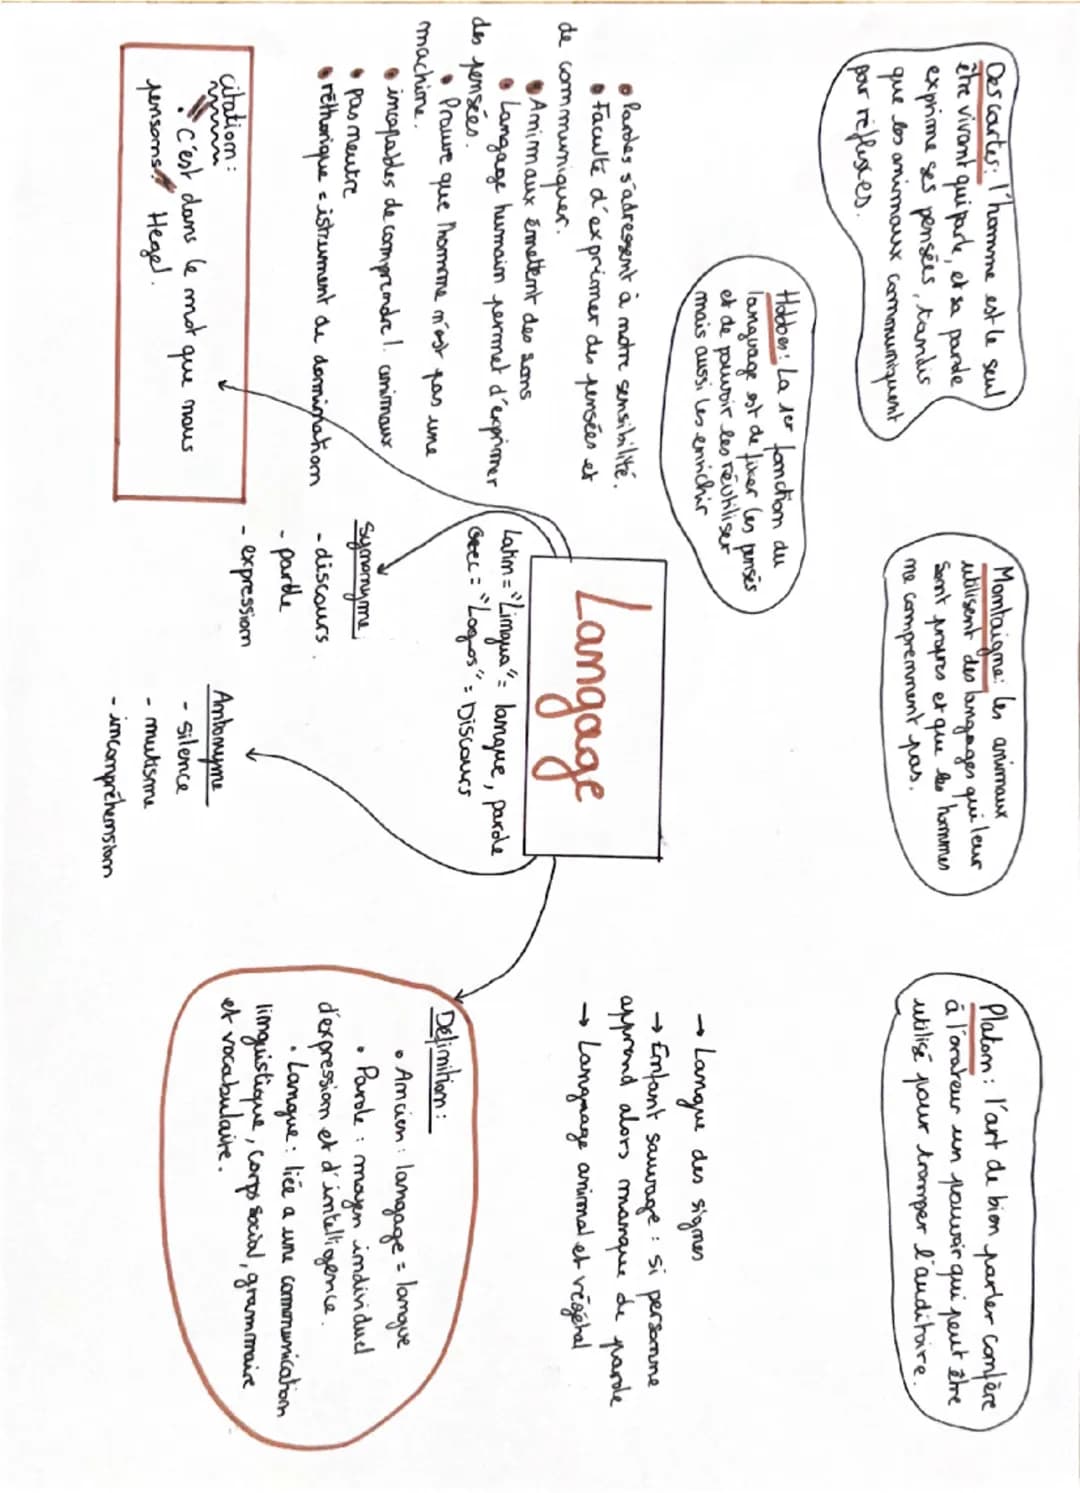 Descartes: l'homme est le seul
être vivant qui parle, et sa parole
exprime ses pensées, tandis
que les animaux communiquent
par réflexes.
Montaigne: les animaux
utilisent des langages qui leur
sont propres et que les hommes
ne comprennent pas.
Platon: l'art de bien parler confère
à l'orateur un pouvoir qui peut être
utilisé pour tromper l'auditoire.
Hobbes: La 1er fonction du
language est de fixer les pensés
et de pouvoir les réutiliser
mais aussi les enrichir
→ Langue des signes
→ Enfant sauvage: si personne
apprend alors manque de parole
→ Language animal et végétal
• Paroles s'adressent à notre sensibilité.
• Faculté d'exprimer des pensées et
de communiquer.
• Animaux émettent des sons
• Langage humain permet d'exprimer
des pensées.
• Prouve que l'homme n'est pas une
machine.
• incapables de comprendre l. animaux
• pas neutre
• réthorique = istrument de domination
Langage
Latin = "Lingua" = langue, parole
Grec = "Logos" = Discours
Synonyme:
- discours.
- parole
- expression
Antonyme
- silence
- mutisme
- incompréhension
Définition:
• Ancien: langage = langue
• Parole: moyen individuel
d'expression et d'intelligence.
• Langue: liée a une communication
linguistique, corps social, grammaire
et vocabulaire.
citation:
"C'est dans le mot que nous
pensons" Hegel.